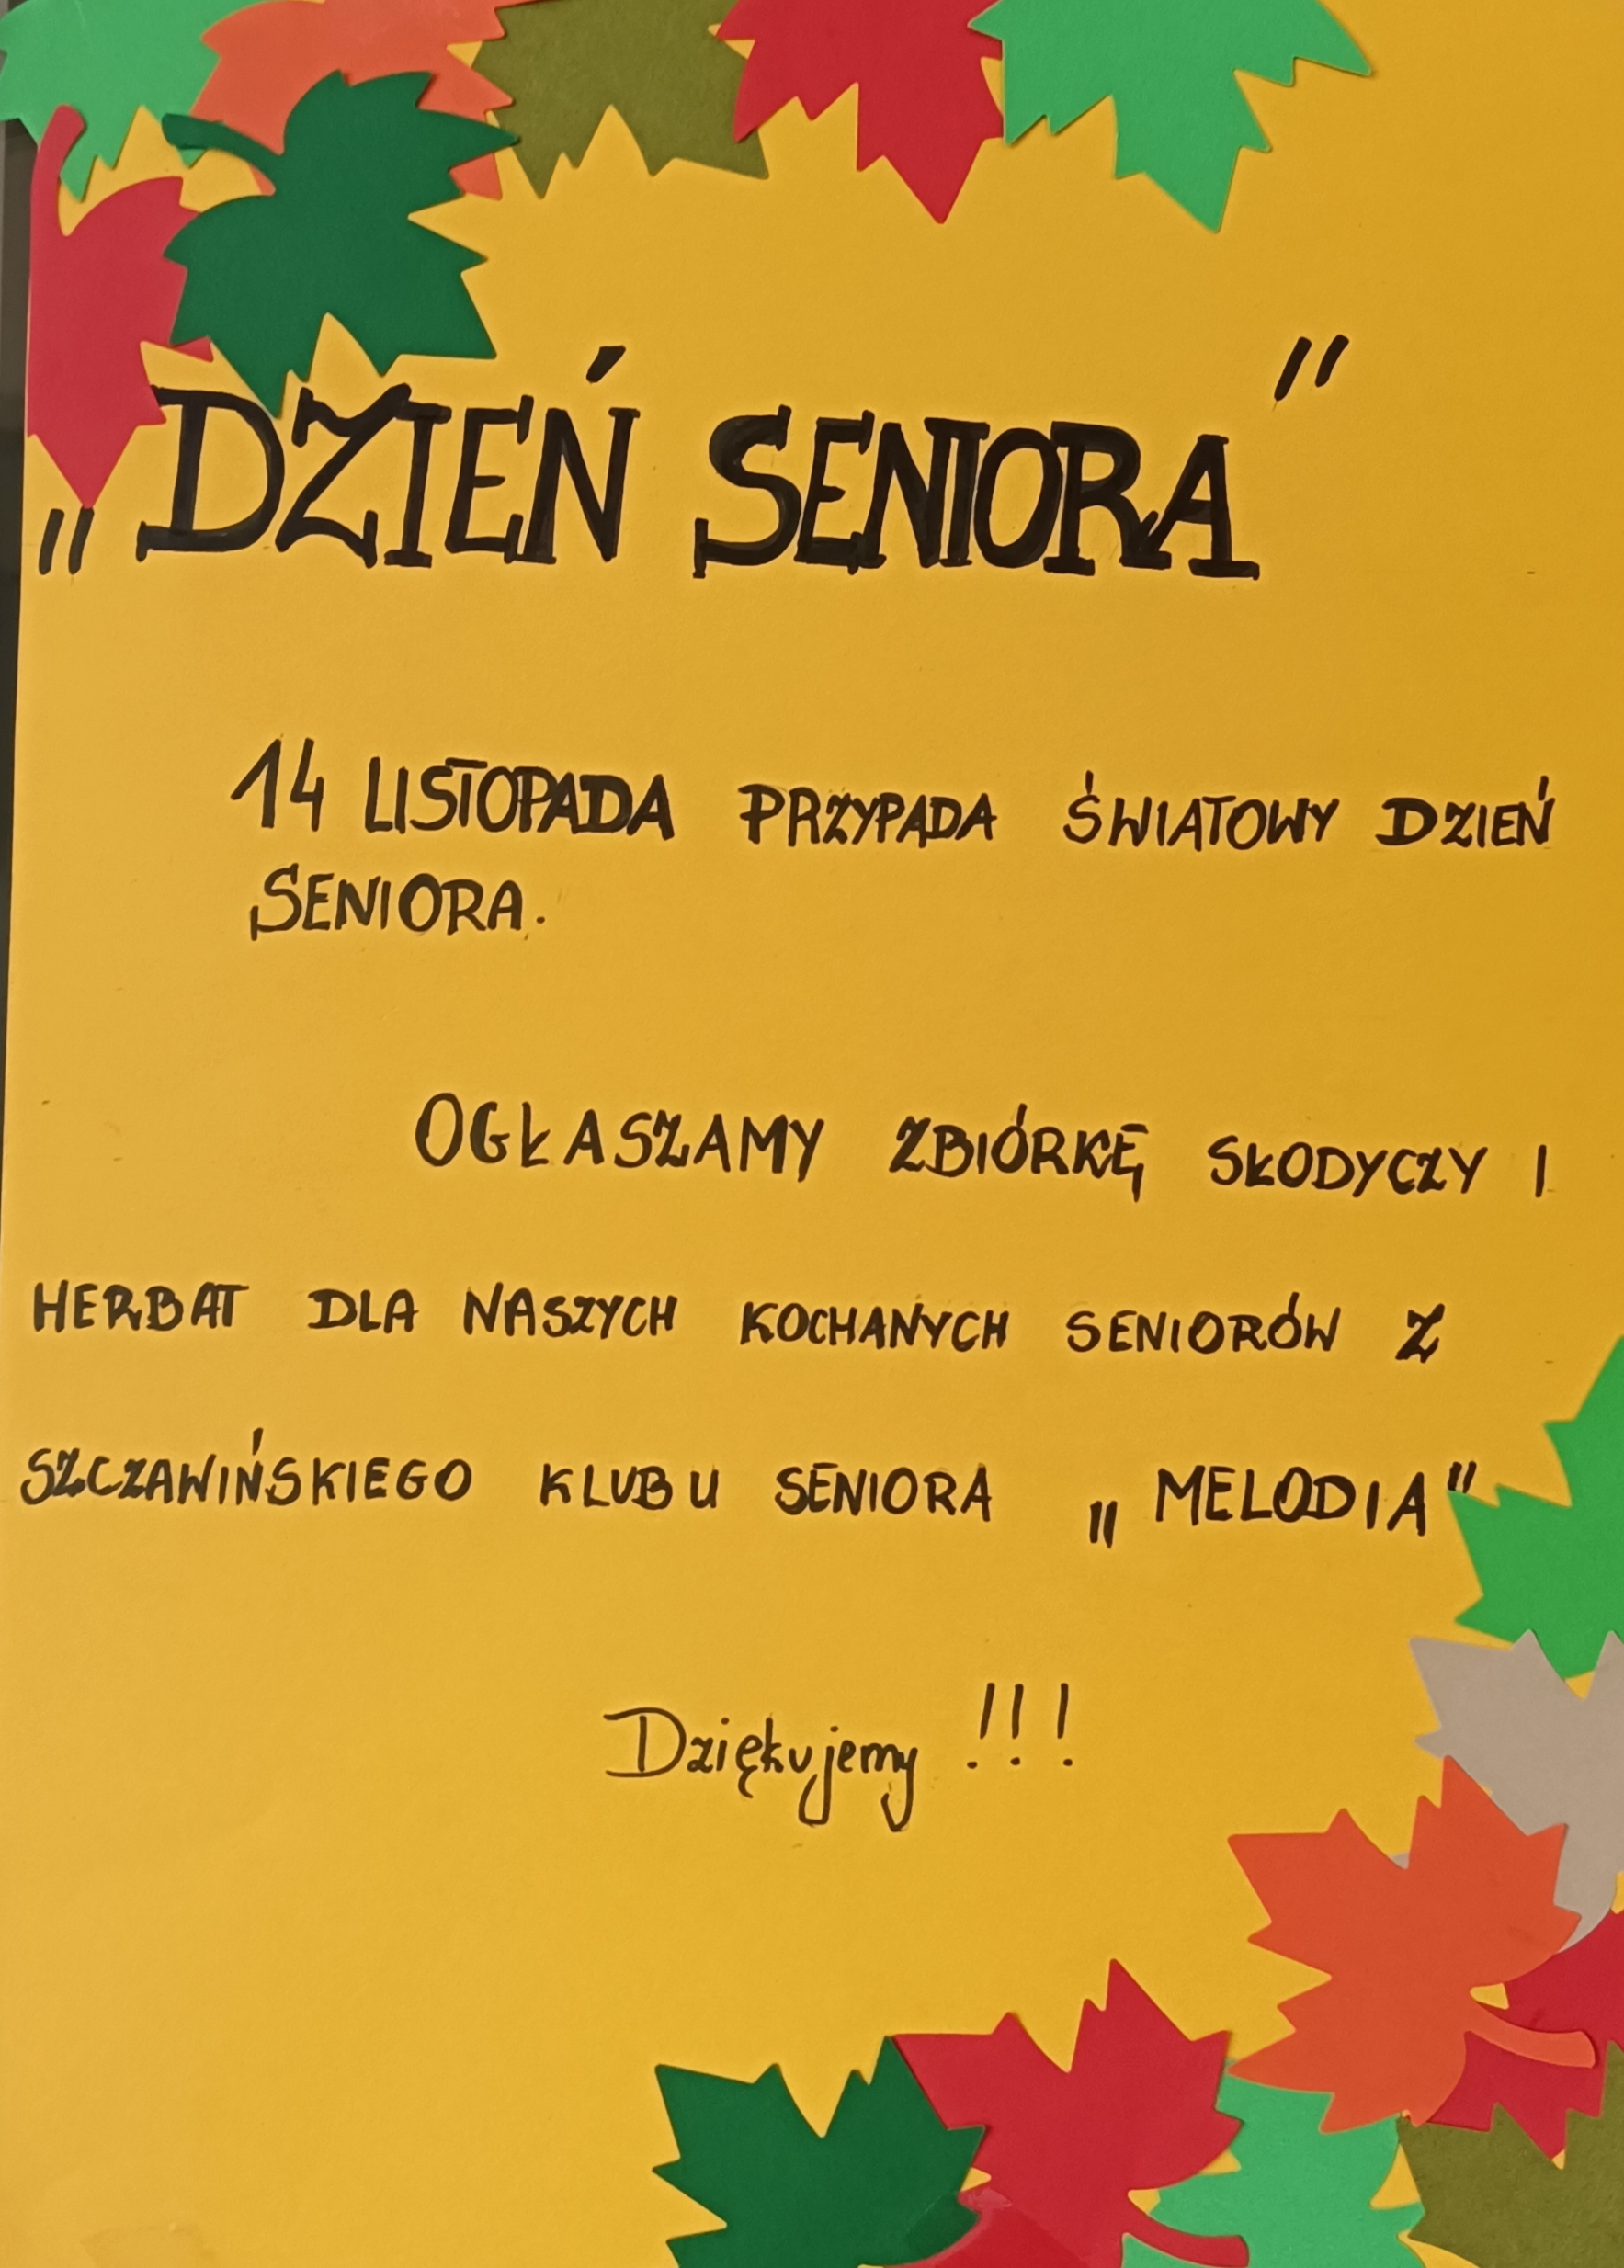 „DZIEŃ SENIORA"
14 LISTOPADA PRZYPADA ŚWIATOWY DZIEŃ
SENIORA.
OGŁASZAMY ZBIÓRKĘ SŁODYCZY I
HERBAT DLA NASZYCH KOCHANYCH SENIORÓW Z
SZCZAWIŃSKIEGO KLUBU SENIORA „MELODIA"
Dziękujemy !!!